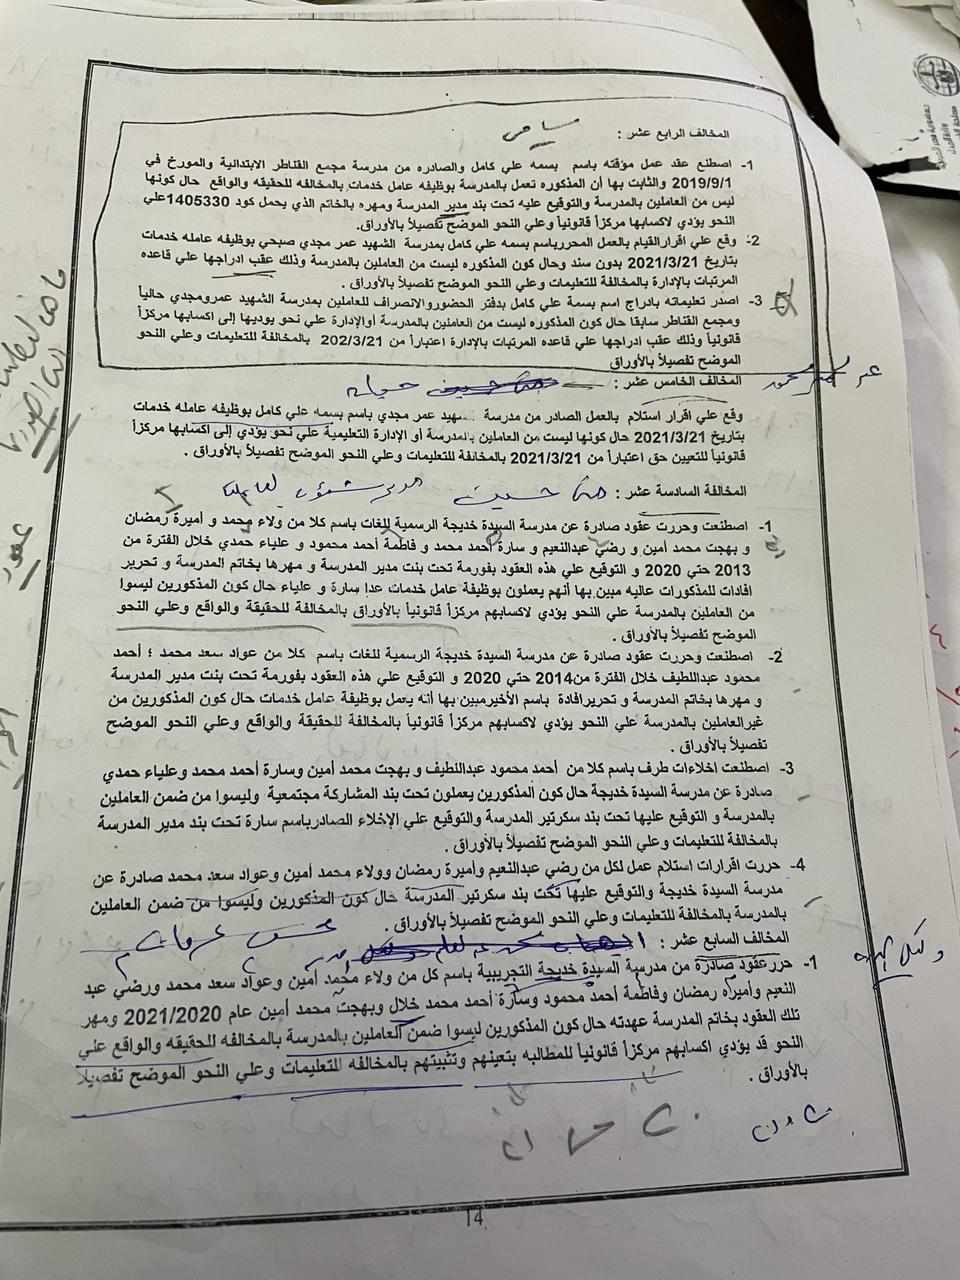 المخالف الرابع عشر : سامى
1- اصطنع عقد عمل مؤقته باسم بسمه علي كامل والصادره من مدرسة مجمع القناطر الابتدائية والمورخ في
2019/9/1 والثابت بها أن المذكوره تعمل بالمدرسة بوظيفه عامل خدمات بالمخالفه للحقيقه والواقع حال كونها
ليس من العاملين بالمدرسة والتوقيع عليه تحت بند مدير المدرسة ومهره بالخاتم الذي يحمل كود 1405330علي
النحو يؤدي لاكسابها مركزأ قانونيأ وعلي النحو الموضح تفصيلأ بالأوراق.
2- وقع علي اقرارالقيام بالعمل المحررباسم بسمه علي كامل بمدرسة الشهيد عمر مجدي صبحي بوظيفه عامله خدمات
بتاريخ 2021/3/21 بدون سند وحال كون المذكوره ليست من العاملين بالمدرسة وذلك عقب ادراجها علي قاعده
المرتبات بالإدارة بالمخالفة للتعليمات وعلي النحو الموضح تفصيلأ بالأوراق .
3- اصدر تعليماته بادراج اسم بسمة علي كامل بدفتر الحضوروالانصراف للعاملين بمدرسة الشهيد عمرومجدي حالياً
ومجمع القناطر سابقا حال كون المذكوره ليست من العاملين بالمدرسة أوالإدارة علي نحو يوديها إلى اكسابها مركزأ
قانونيأ وذلك عقب ادراجها علي قاعده المرتبات بالإدارة اعتبارأ من 202/3/21 بالمخالفة للتعليمات وعلي النحو
الموضح تفصيلأ بالأوراق
المخالف الخامس عشر :
وقع علي اقرار استلام بالعمل الصادر من مدرسة سهيد عمر مجدي باسم بسمه علي كامل بوظيفه عامله خدمات
بتاريخ 2021/3/21 حال كونها ليست من العاملين بالمدرسة أو الإدارة التعليمية علي نحو يؤدي إلى اكسابها مركزأ
قانونيأ للتعيين حق اعتبارأ من 2021/3/21 بالمخالفة للتعليمات وعلي النحو الموضح تفصيلأ بالأوراق .
المخالفة السادسة عشر : حنا حسين مدير شئون عاملة
1- اصطنعت وحررت عقود صادرة عن مدرسة السيدة خديجة الرسمية للغات باسم كلا من ولاء محمد و أميرة رمضان
و بهجت محمد أمين و رضي عبدالنعيم و سارة أحمد محمد و فاطمة أحمد محمود و علياء حمدي خلال الفترة من
2013 حتي 2020 و التوقيع علي هذه العقود بفورمة تحت بنت مدير المدرسة و مهرها بخاتم المدرسة و تحرير
افادات للمذكورات عاليه مبين بها أنهم يعملون بوظيفة عامل خدمات عدا سارة و علياء حال كون المذكورين ليسوا
من العاملين بالمدرسة علي النحو يؤدي لاكسابهم مركزأ قانونيأ بالأوراق بالمخالفة للحقيقة والواقع وعلي النحو
الموضح تفصيلأ بالأوراق .
2- اصطنعت وحررت عقود صادرة عن مدرسة السيدة خديجة الرسمية للغات باسم كلا من عواد سعد محمد ؛ أحمد
محمود عبداللطيف خلال الفترة من2014 حتي 2020 و التوقيع علي هذه العقود بفورمة تحت بنت مدير المدرسة
و مهرها بخاتم المدرسة و تحريرافادة باسم الأخيرمبين بها أنه يعمل بوظيفة عامل خدمات حال كون المذكورين من
غيرالعاملين بالمدرسة علي النحو يؤدي لاكسابهم مركزأ قانونيأ بالمخالفة للحقيقة والواقع وعلي النحو الموضح
تفصيلأ بالأوراق .
3- اصطنعت اخلاءات طرف باسم كلا من أحمد محمود عبداللطيف و بهجت محمد أمين وسارة أحمد محمد وعلياء حمدي
صادرة عن مدرسة السيدة خديجة حال كون المذكورين يعملون تحت بند المشاركة مجتمعية وليسوا من ضمن العاملين
بالمدرسة و التوقيع عليها تحت بند سكرتير المدرسة والتوقيع علي الإخلاء الصادرباسم سارة تحت بند مدير المدرسة
بالمخالفة للتعليمات وعلي النحو الموضح تفصيلأ بالأوراق .
4- حررت اقرارات استلام عمل لكل من رضي عبدالنعيم وأميرة رمضان وولاء محمد أمين وعواد سعد محمد صادرة عن
مدرسة السيدة خديجة والتوقيع عليها تحت بند سكرتير المدرسة حال كون المذكورين وليسوا من ضمن العاملين
بالمدرسة بالمخالفة للتعليمات وعلي النحو الموضح تفصيلأ بالأوراق .
المخالف السابع عشر :
1- حررعقود صادرة من مدرسة السيدة خديجة التجريبية باسم كل من ولاء محمد أمين وعواد سعد محمد ورضي عبد
النعيم وأميره رمضان وفاطمة أحمد محمود وسارة أحمد محمد خلال وبهجت محمد أمين عام 2021/2020 ومهر
تلك العقود بخاتم المدرسة عهدته حال كون المذكورين ليسوا ضمن العاملين بالمدرسة بالمخالفه للحقيقه والواقع علي
النحو قد يؤدي اكسابهم مركزأ قانونيأ للمطالبه بتعينهم وتثبيتهم بالمخالفه للتعليمات وعلي النحو الموضح تفصيلأ
بالأوراق .
14